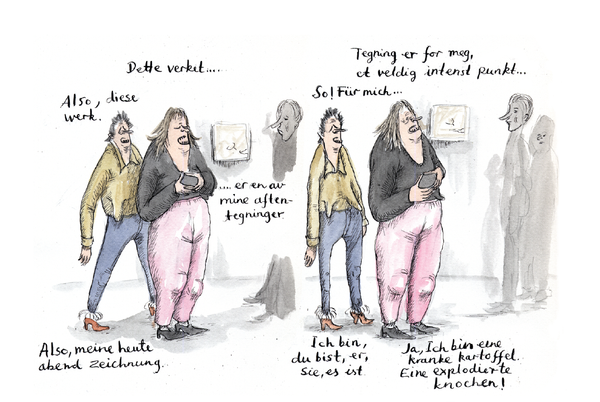 Dette verket.....
Also, diese
werk.
.... er en av
mine aften-
tegninger
Also, meine heute
abend zeichnung.
Tegning er for meg,
et veldig intenst punkt...
So! Für mich...
Ich bin,
du bist, er,
Sie, es ist
Ja, Ich bin eine
kranke kartoffel.
Eine explodierte
knochen!